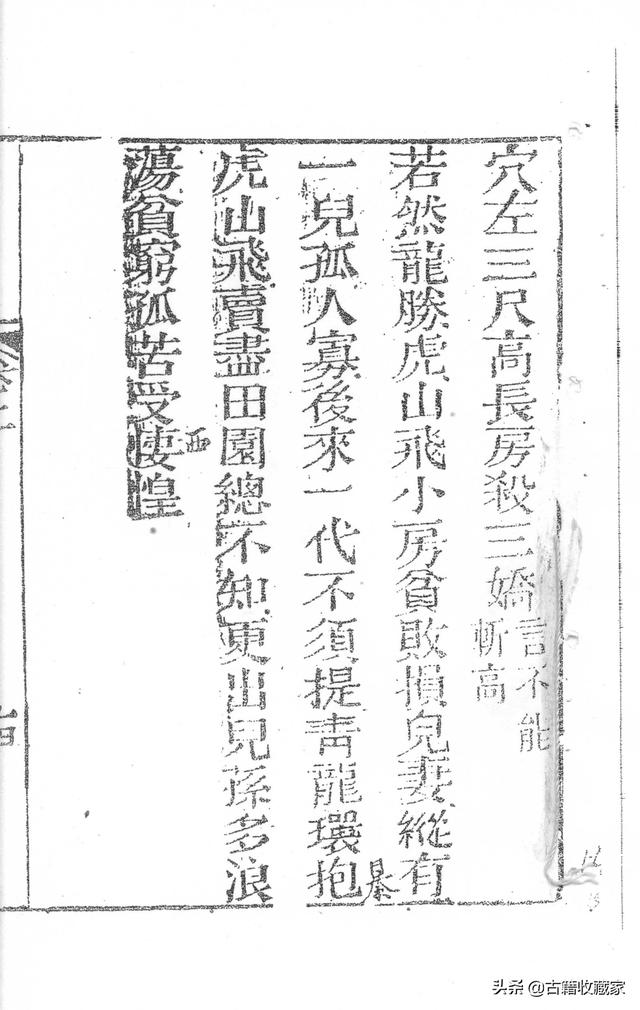 穴左三尺高長房殺三嬌言不能
斬高
若然龍勝虎山飛小房貧敗損兒妻縱有
一兒孤人寡後來一代不須提青龍環抱
墓
虎山飛賣盡田園總不知更出兒孫多浪
蕩貧窮孤苦受悽惶
西
头条@古籍收藏家